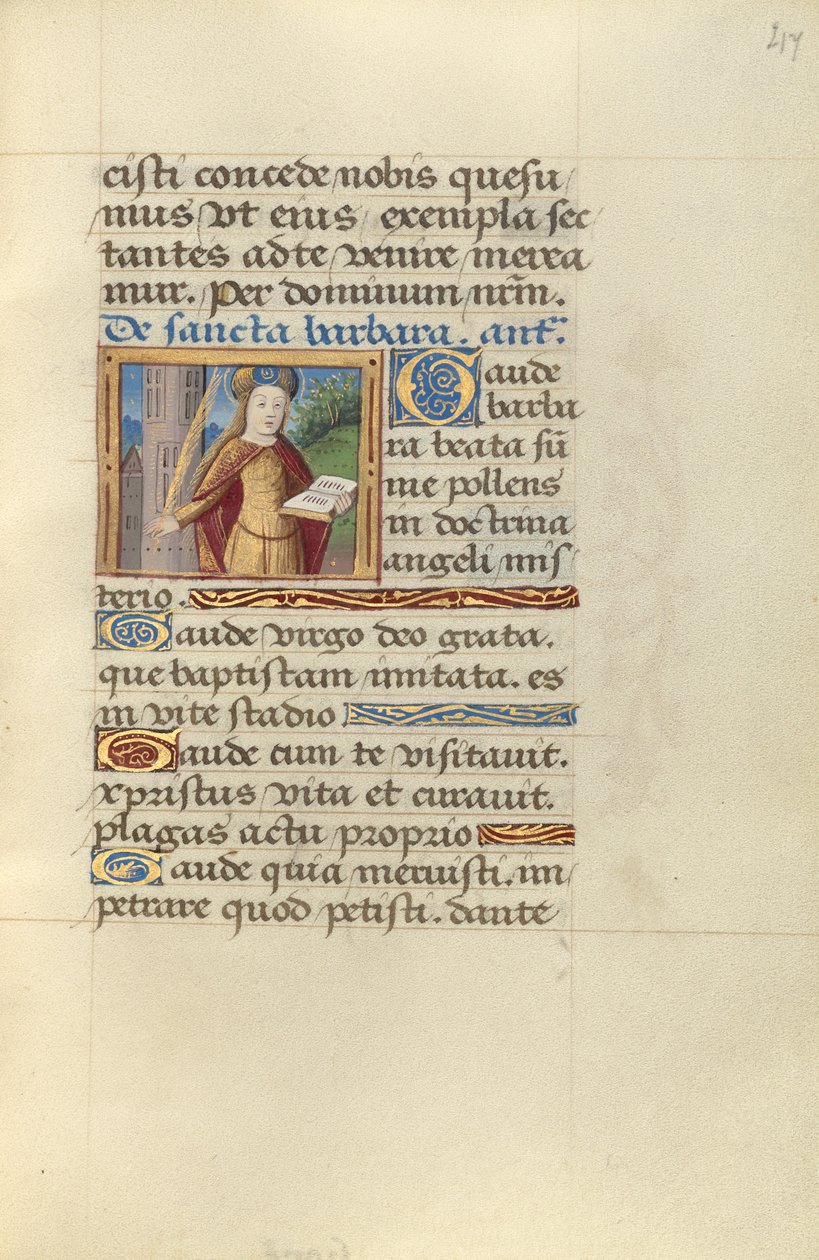 217
cisti concede nobis quesu
mus vt eius exempla sec
tantes ad te venire merea
mur. Per dominum nr̄m.
De sancta barbara. ant̄.
Gaude
barba
ra beata sū
me pollens
in doctrina
angeli mis
terio.
Gaude virgo deo grata.
que baptistam imitata. es
in vite stadio
Gaude cum te visitauit.
xpristus vita et curauit.
plagas actu proprio
Gaude quia meruisti. im
petrare quod petisti. dante